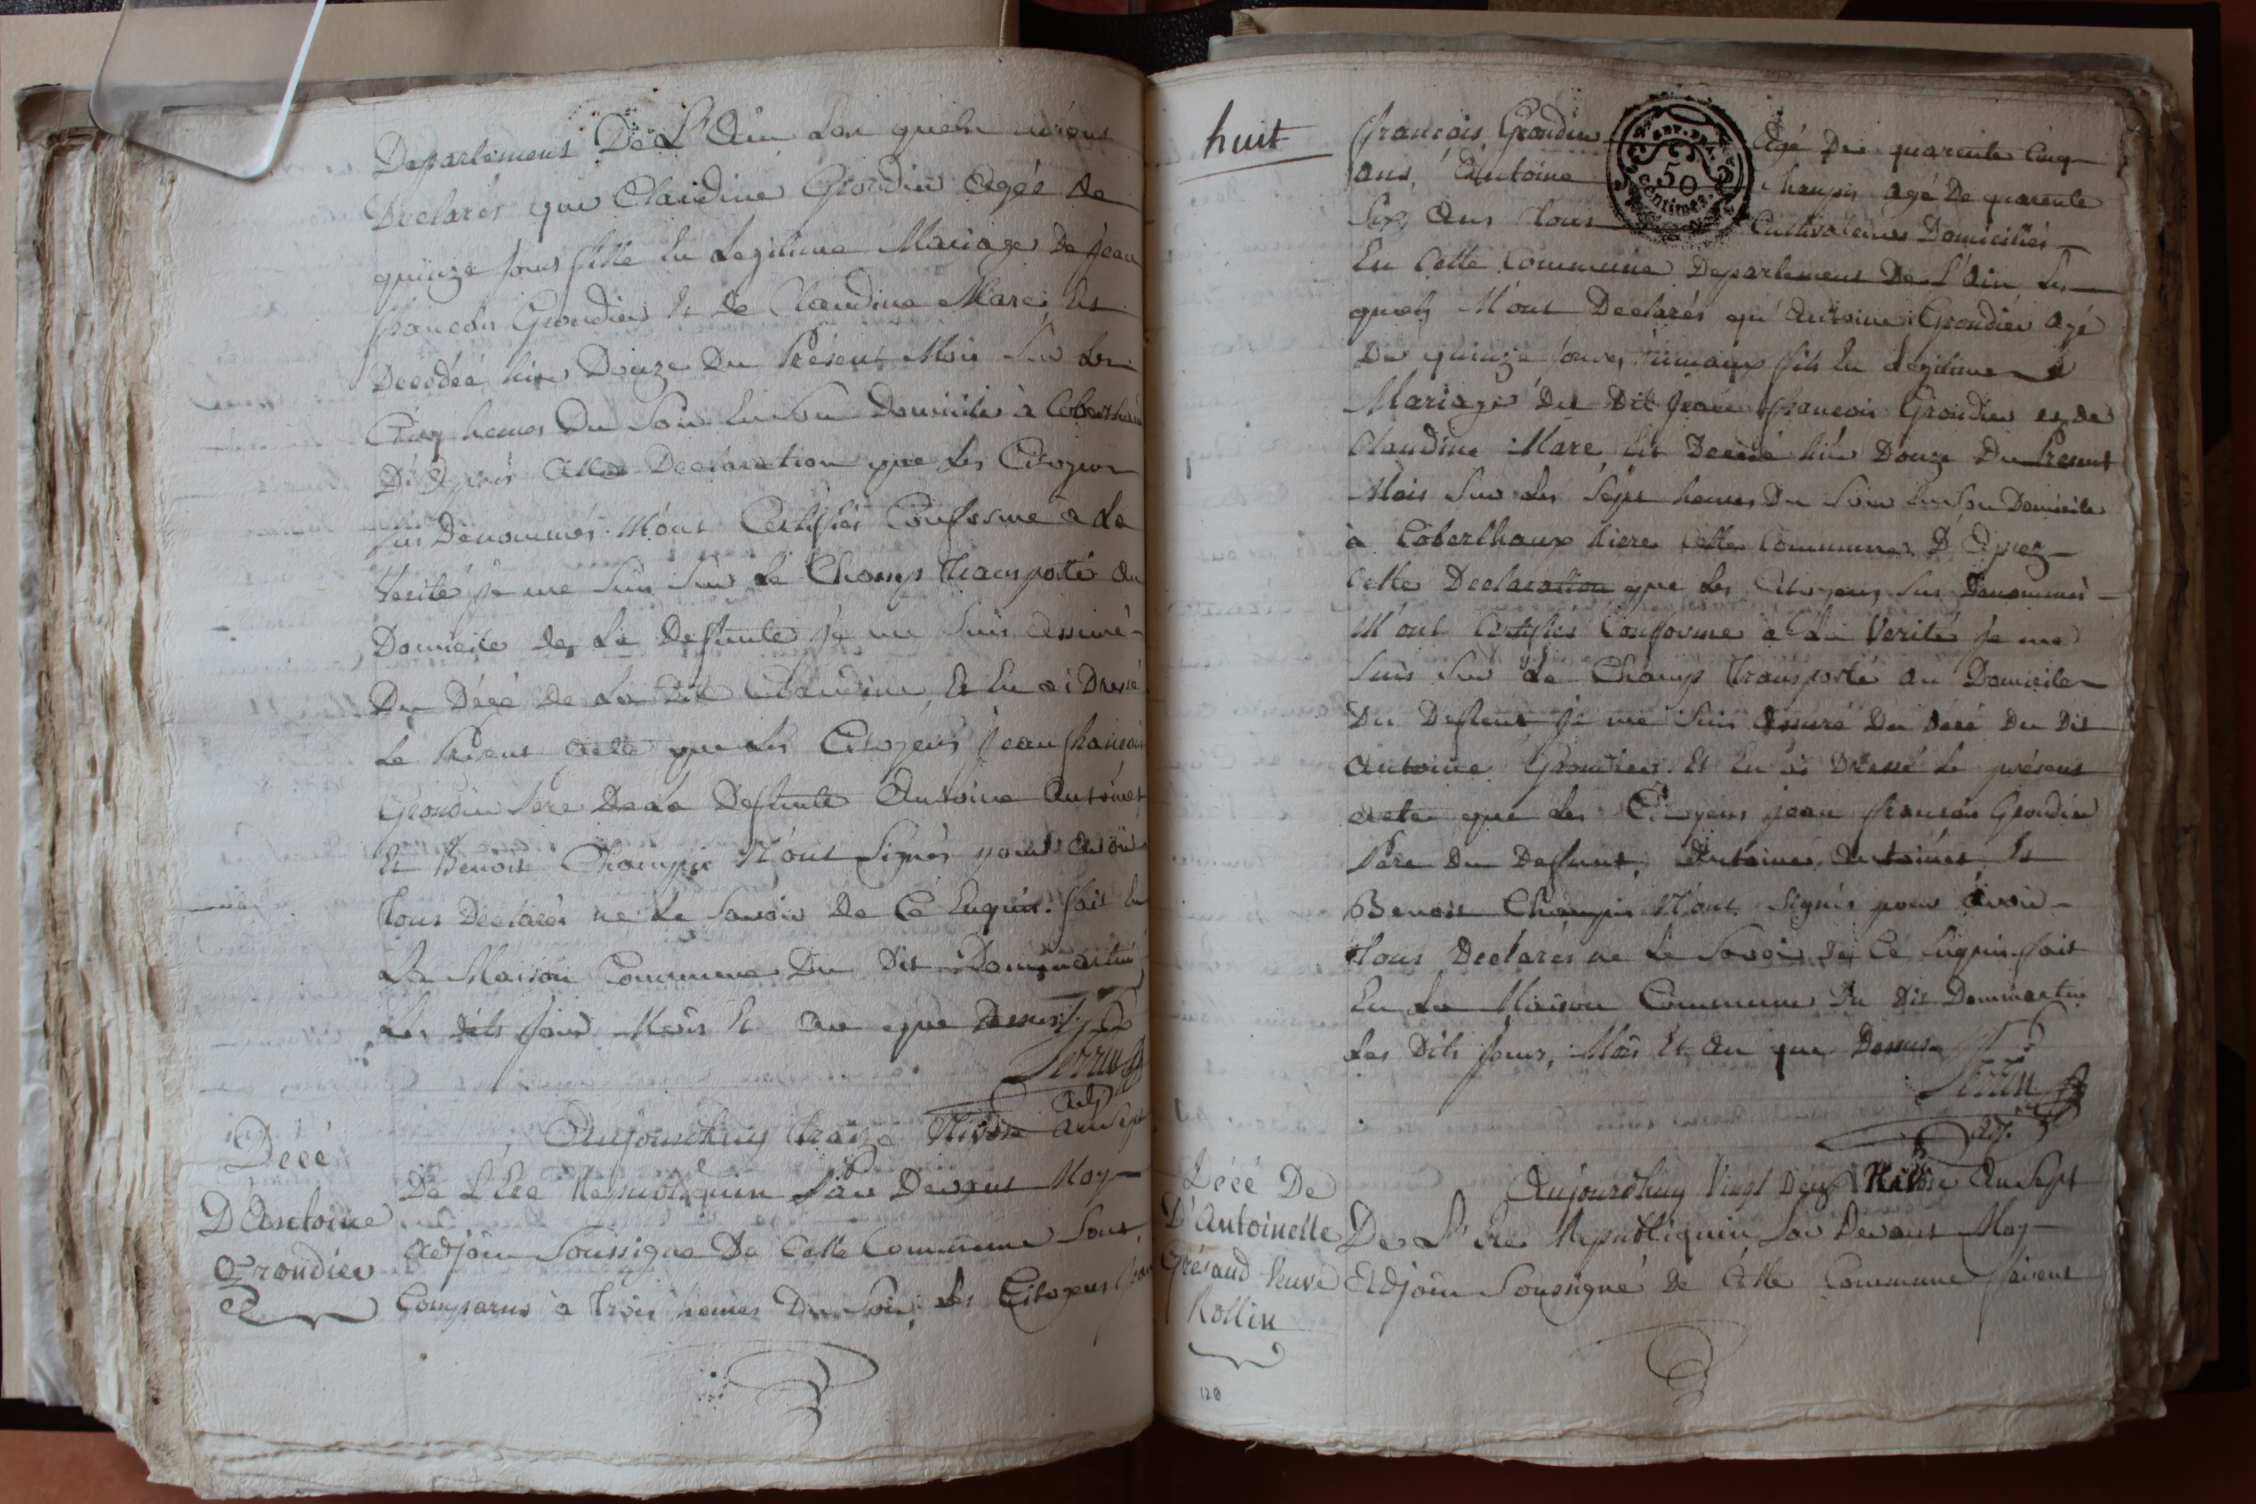 Departement De L'Ain Les quels m'ont
Declarés que Claudine Grondier Agée de
quinze Jours fille En Legitime Mariage De Jean
francois Grondier Et de Claudine Mare, Est
Decedée hier Douze Du Présent Mois Sur Les
Cinq heures Du Soir En Son Domicile à
D'Après Cette Declaration que Les Citoyens
Sus Denommés M'ont Certifiés Conforme a La
Verité je me Suis Sur Le Champ Transporté Au
Domicile de La Deffunte je me Suis Assuré
Du Décé De La dit Claudine, Et En ai Dressé
Le Présent Acte que Les Citoyens Jean francois
Grondier Pere De La Deffunte Antoine Antoinet
Et Benoit Champin N'ont Signés pour Avoir
Tous Declarés ne Le Savoir De Ce Enquis. fait En
La Maison Commune Du Dit Dommartin
Les Dits Jour Mois Et An que Dessus
Perrin
Adj
Décé
D'Antoine
Grondier
Aujourdhuy Traize Nivose An Sept
De L'Ere Republiquin Par Devant Moy
Adjoin Soussigné De Cette Commune Sont
Comparus à Trois heures Du Soir, Les Citoyens Jean
huit
francois Grondier Agé De quarente Cinq
ans, Antoine Champin agé De quarente
50
Centimes
Six Ans Tous Cultivateurs Domiciliés
En Cette Commune Departement De L'Ain Les
quels M'ont Declarés qu'Antoine Grondier agé
De quinze Jours, jumaux fils En Legitime
Mariage Du Dit Jean francois Grondier et De
Claudine Mare Est Decedé hier Douze Du Present
Mois Sur Les Sept heures Du Soir En Son Domicile
à Coberthoux Riere Cette Commune, D'Aprez
Cette Declaration que Les Citoyens Sus Denommés
M'ont Certifiés Conforme à La Verité Je me
Suis Sur Le Champ Transporté au Domicile
Du Deffunt je me Suis Assuré Du Décé Du Dit
Antoine Grondier Et En ai Dressé Le présent
acte que Les Citoyens jean francois Grondier
Pere Du Deffunt, Antoine Antoinet Et
Benoit Champin N'ont Signés pour Avoir
Tous Declarés ne Le Savoir De Ce Enquis fait
En La Maison Commune Du Dit Dommartin
Les Dits Jours, Mois Et An que Dessus
Perrin
Adj.
Décé De
D'Antoinette
Grésaud Veuve
Rollin
Aujourdhuy Vingt Deux Nivose An Sept
De L'Ere Republiquin Par Devant Moy
Adjoin Soussigné de Cette Commune
128